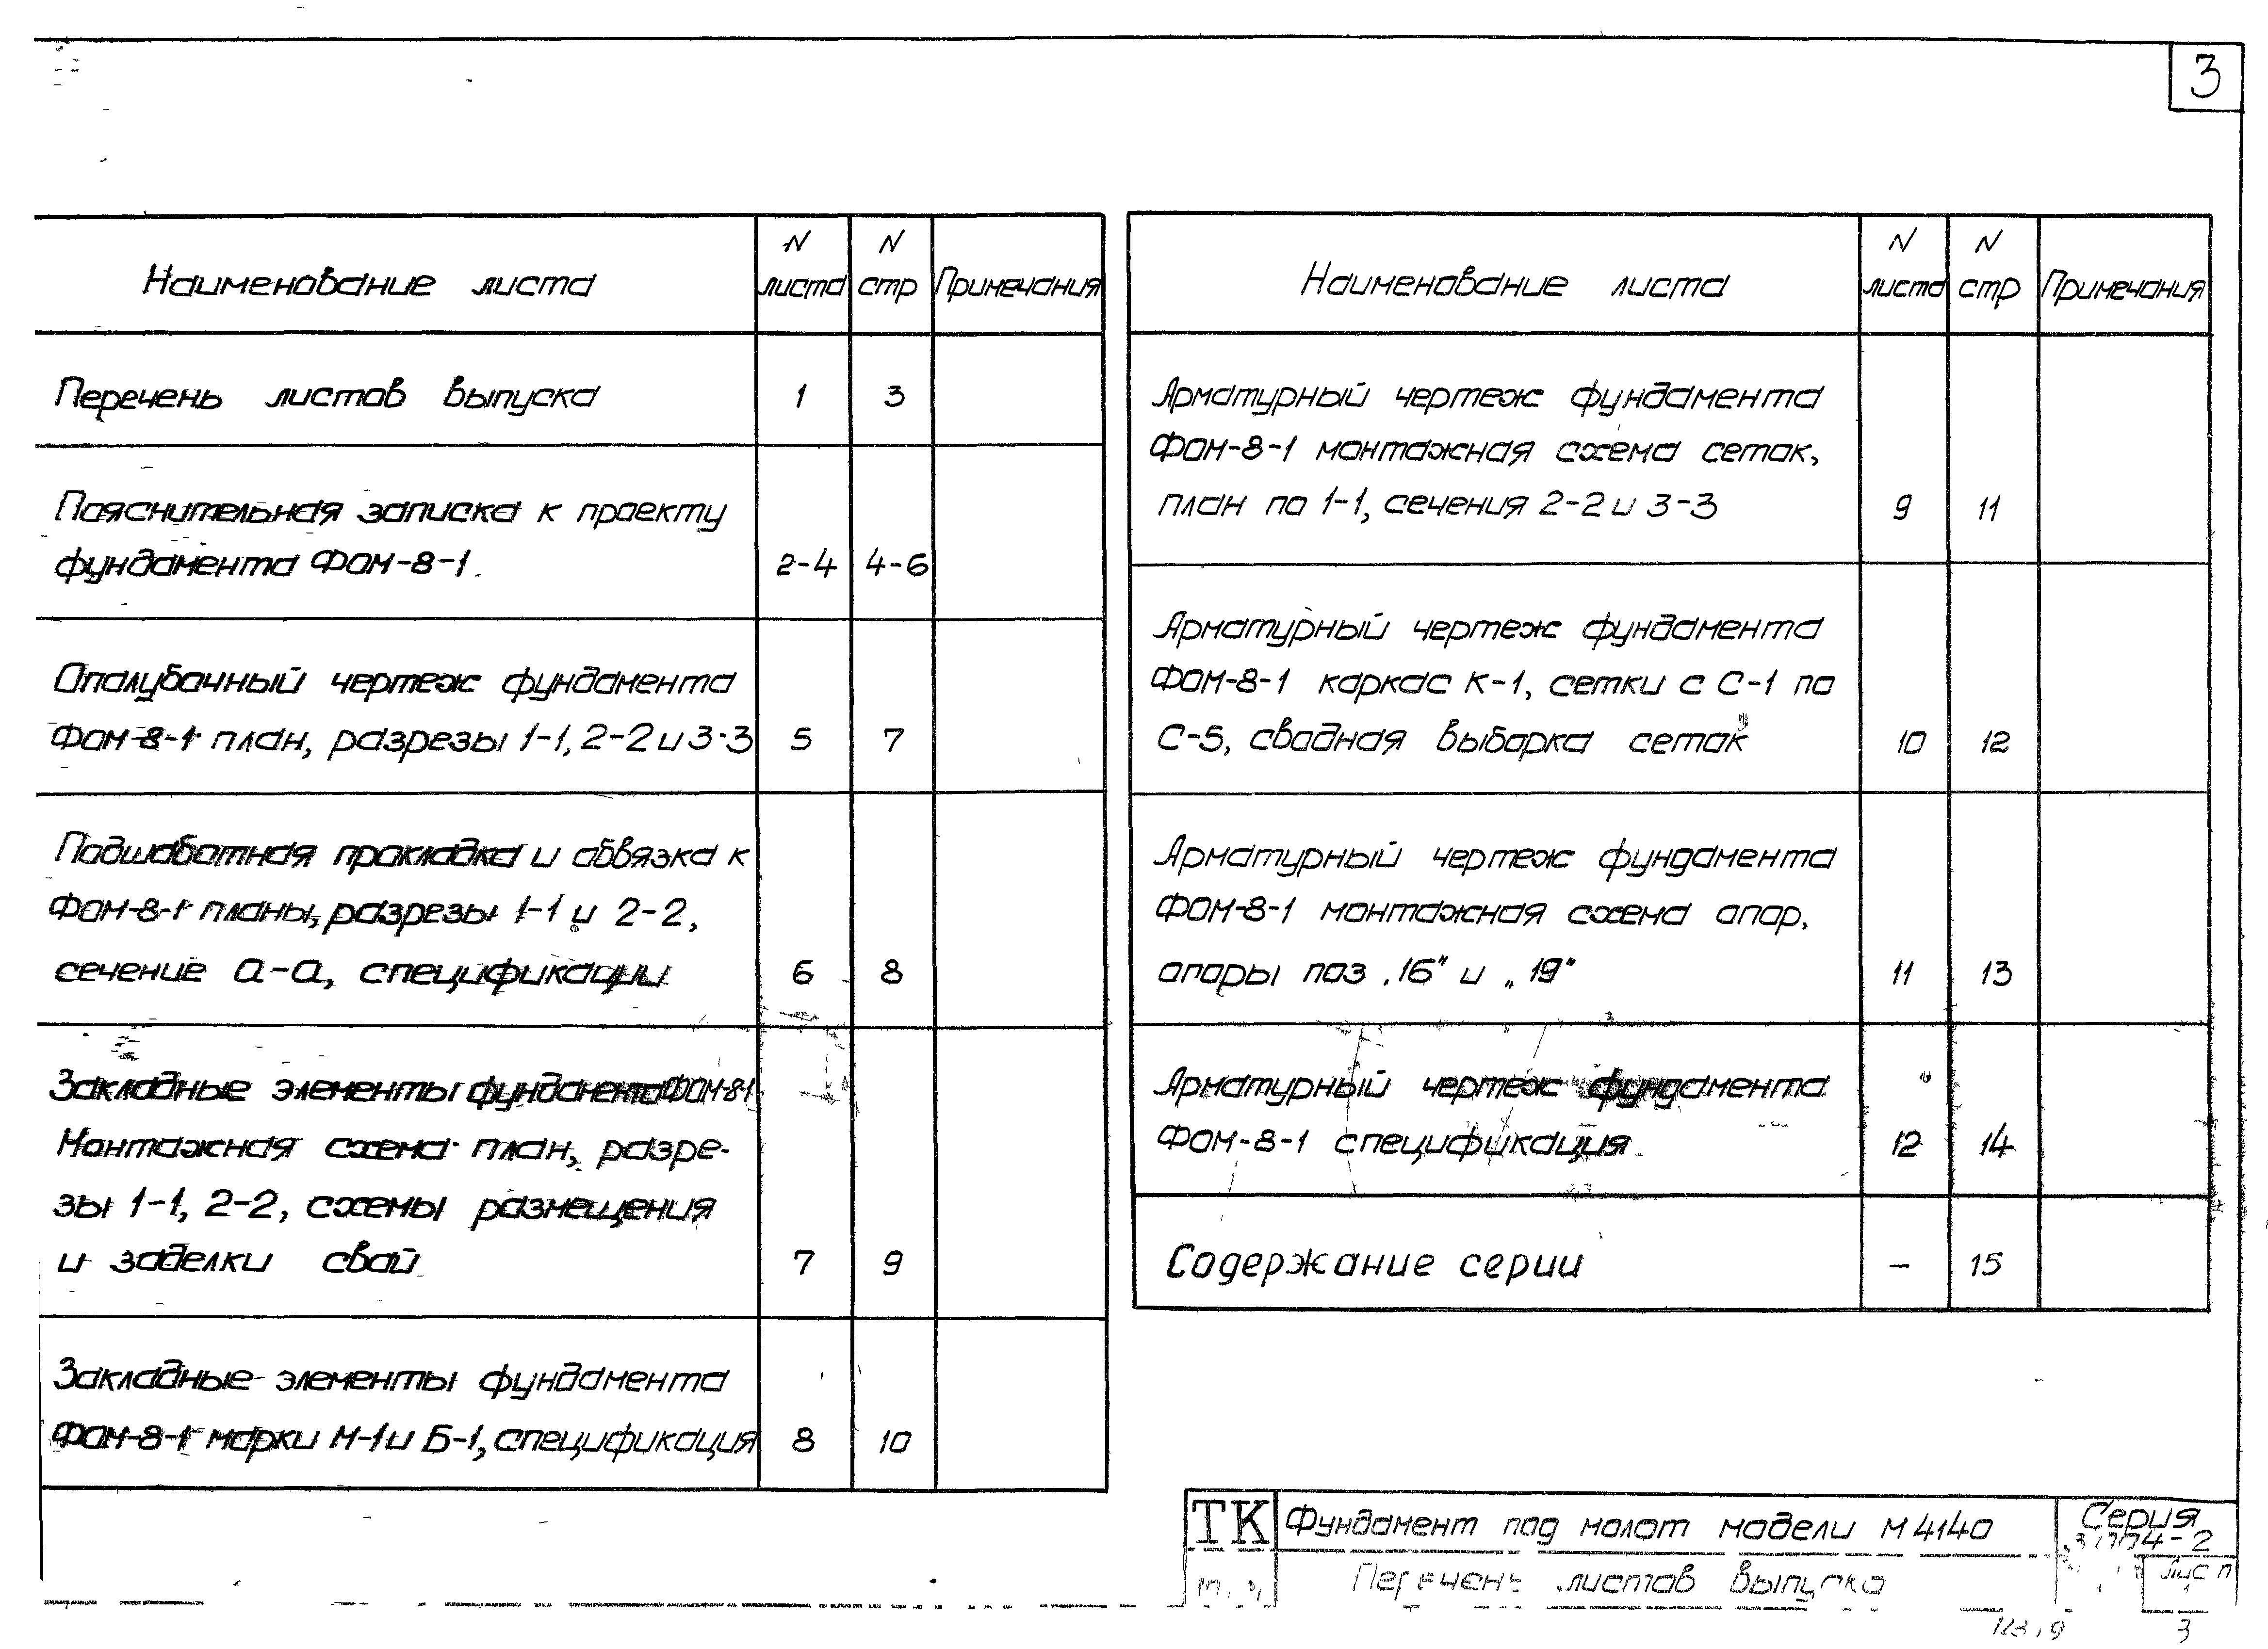 3
Наименование листа
N листа
N стр
Примечания
Перечень листов выпуска 1 3
Пояснительная записка к проекту
фундамента Фом-8-1. 2-4 4-6
Опалубочный чертеж фундамента
Фом-8-1 план, разрезы 1-1, 2-2 и 3-3 5 7
Подшаботная прокладка и обвязка к
Фом-8-1 планы, разрезы 1-1 и 2-2,
сечение а-а, спецификации 6 8
Закладные элементы фундамента Фом-8-1
Монтажная схема план, разре-
зы 1-1, 2-2, схемы размещения
и заделки свай 7 9
Закладные элементы фундамента
Фом-8-1 марки М-1 и Б-1, спецификация 8 10
Наименование листа
N листа
N стр
Примечания
Арматурный чертеж фундамента
Фом-8-1 монтажная схема сеток,
план по 1-1, сечения 2-2 и 3-3 9 11
Арматурный чертеж фундамента
Фом-8-1 каркас К-1, сетки с С-1 по
С-5, сводная выборка сеток 10 12
Арматурный чертеж фундамента
Фом-8-1 монтажная схема опор,
опоры поз „16" и „19" 11 13
Арматурный чертеж фундамента
Фом-8-1 спецификация. 12 14
Содержание серии – 15
ТК Фундамент под молот модели М4140 Серия
Перечень листов выпуска
3